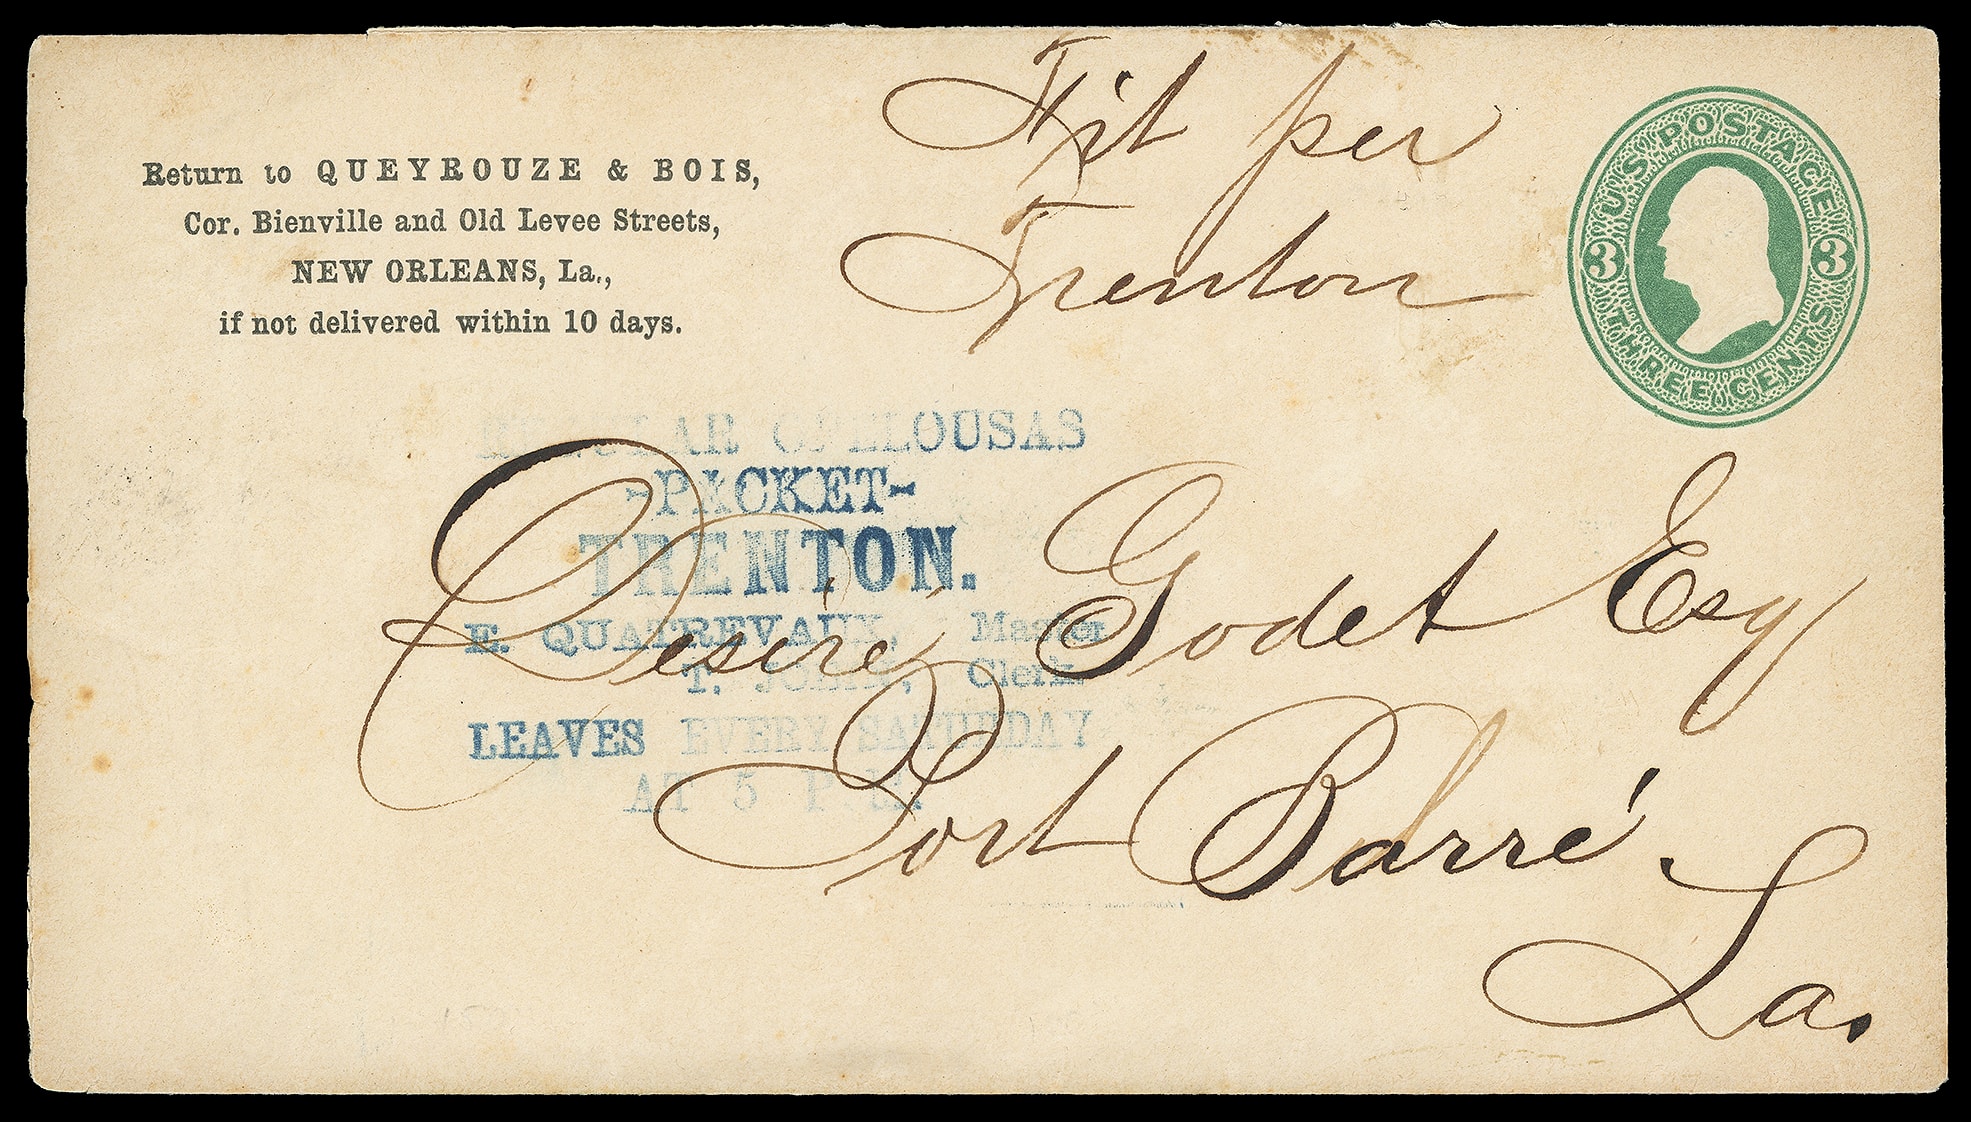 Return to QUEYROUZE & BOIS,
Cor. Bienville and Old Levee Streets,
NEW ORLEANS, La.,
if not delivered within 10 days.
per
Trenton
U.S. POSTAGE
3 3
THREE CENTS
REGULAR OPELOUSAS
-PACKET-
TRENTON.
E. QUATREVAUX, Master
T. Clerk
LEAVES EVERY SATURDAY
AT 5 P.M.
Desiré Godet Esq
Port Barré.
La.